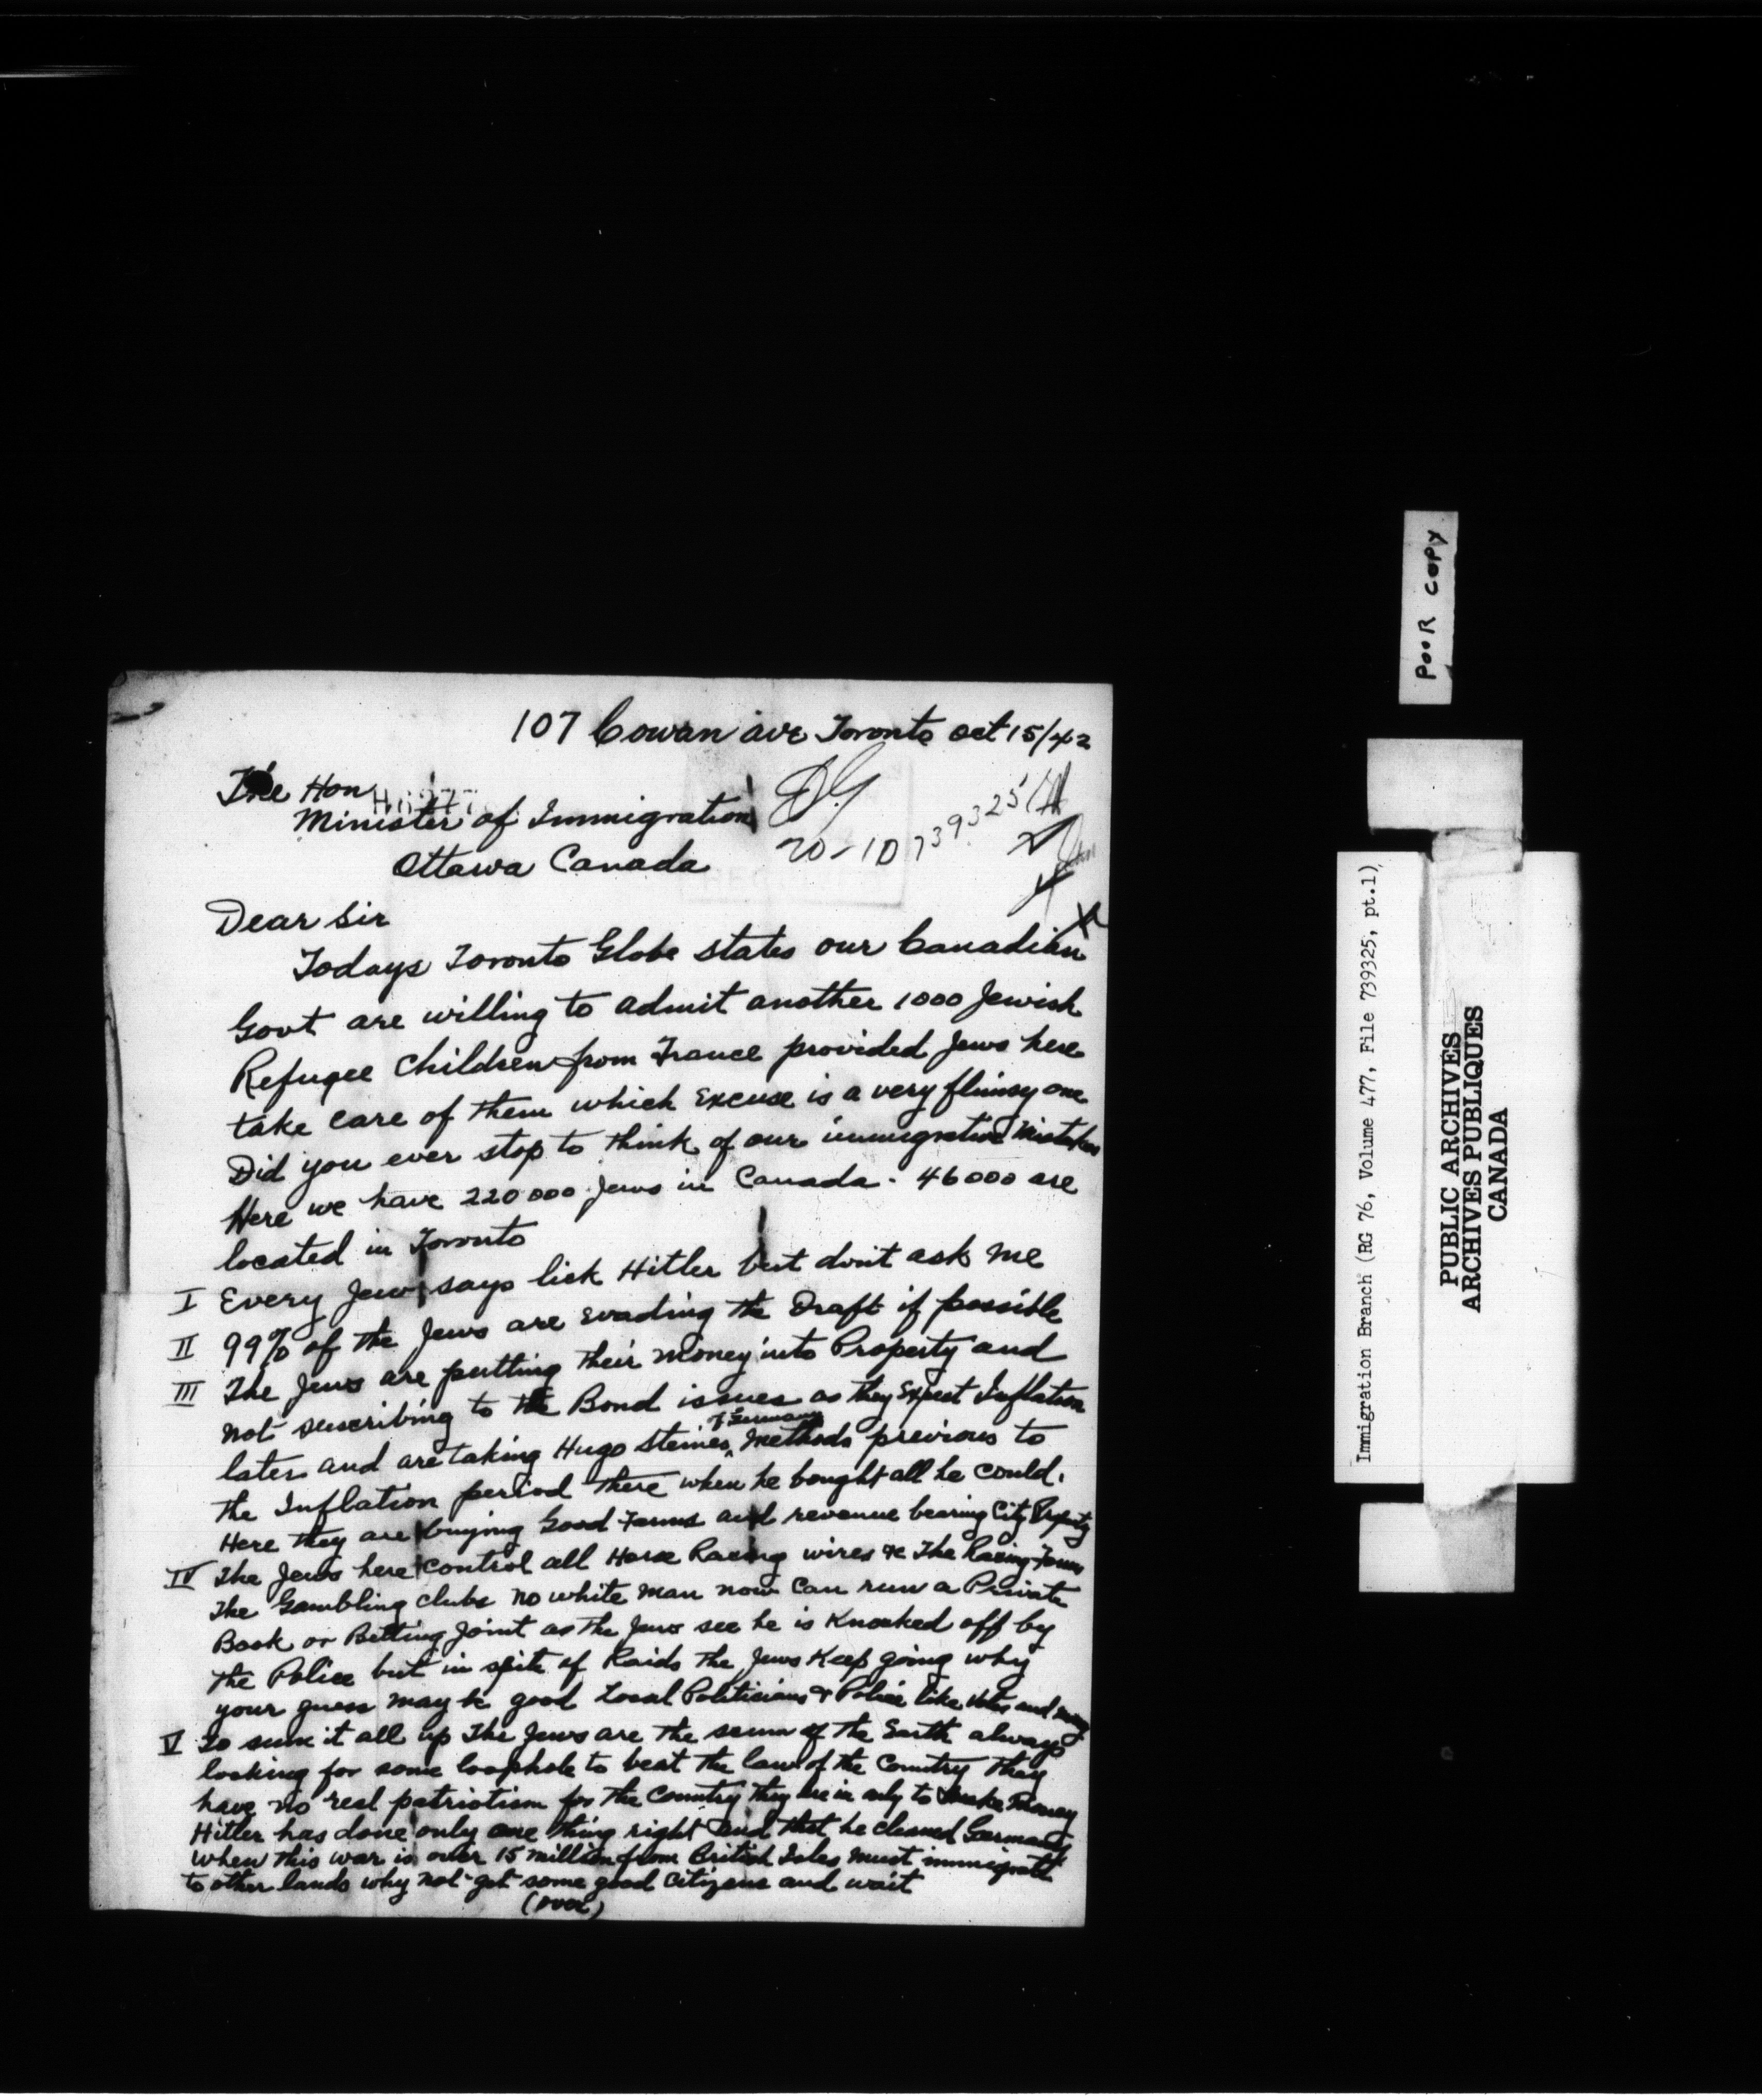 107 Cowan ave Toronto Oct 15/42
The Hon
H6277
Minister of Immigration
Ottawa Canada
DG
20-10
739325
Dear Sir
Todays Toronto Globe states our Canadian
Govt are willing to admit another 1000 Jewish
Refugee Children from France provided Jews here
take care of them which Excuse is a very flimsy one
Did you ever stop to think of our immigration Mistakes
Here we have 220000 Jews in Canada. 46000 are
located in Toronto
I Every Jew says lick Hitler but don't ask me
II 99% of the Jews are Evading the Draft if possible
III The Jews are putting their money into Property and
not suscribing to the Bond issues as they Expect Inflation
later and are taking Hugo Steines of Germany Methods previous to
the Inflation period there when he bought all he could.
Here they are buying Good Farms and revenue bearing City Property
IV The Jews here control all Horse Racing wires & The Racing Forms
The Gambling clubs no white man now can run a Private
Book or Betting joint as the Jews see he is Knocked off by
the Police but in spite of Raids the Jews Keep going why
your guess may be good Local Politicians & Police like votes and money
V To sum it all up The Jews are the scum of the Earth always
looking for some loophole to beat the law of the Country They
have no real patriotism for the Country they are in only to make money
Hitler has done only one thing right and that he cleaned Germany
When this war is over 15 million from British Isles must immigrate
to other lands why not get some good citizens and wait
(over)
POOR COPY
Immigration Branch (RG 76, Volume 477, File 739325, pt.1)
PUBLIC ARCHIVES
ARCHIVES PUBLIQUES
CANADA